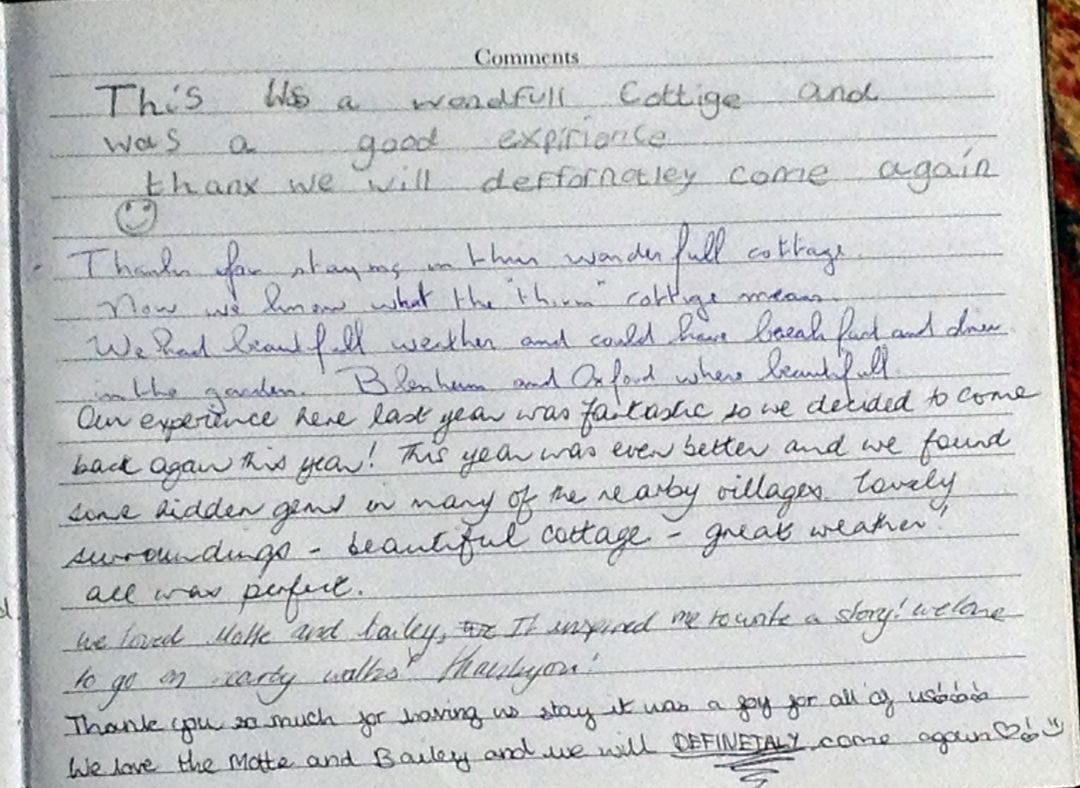 Comments
This was a wondfull Cottige and
was a good expirionce
thanx we will deffornatley come again
Thanks for staying in this wonderfull cottage.
Now we know what the "thim" cottige means.
We had beautifull weather and could have breakfast and diner
in the garden. Blenheim and Oxford where beautifull.
Our experience here last year was fantastic so we decided to come
back again this year! This year was even better and we found
some hidden gems in many of the nearby villages. Lovely
surroundings - beautiful cottage - great weather!
all was perfect.
we loved Motte and bailey, It inspired me to write a story! we love
to go on early walks! thankyou!
Thank you so much for having us stay it was a joy for all of us
We love the Motte and Bailey and we will DEFINETALY come again